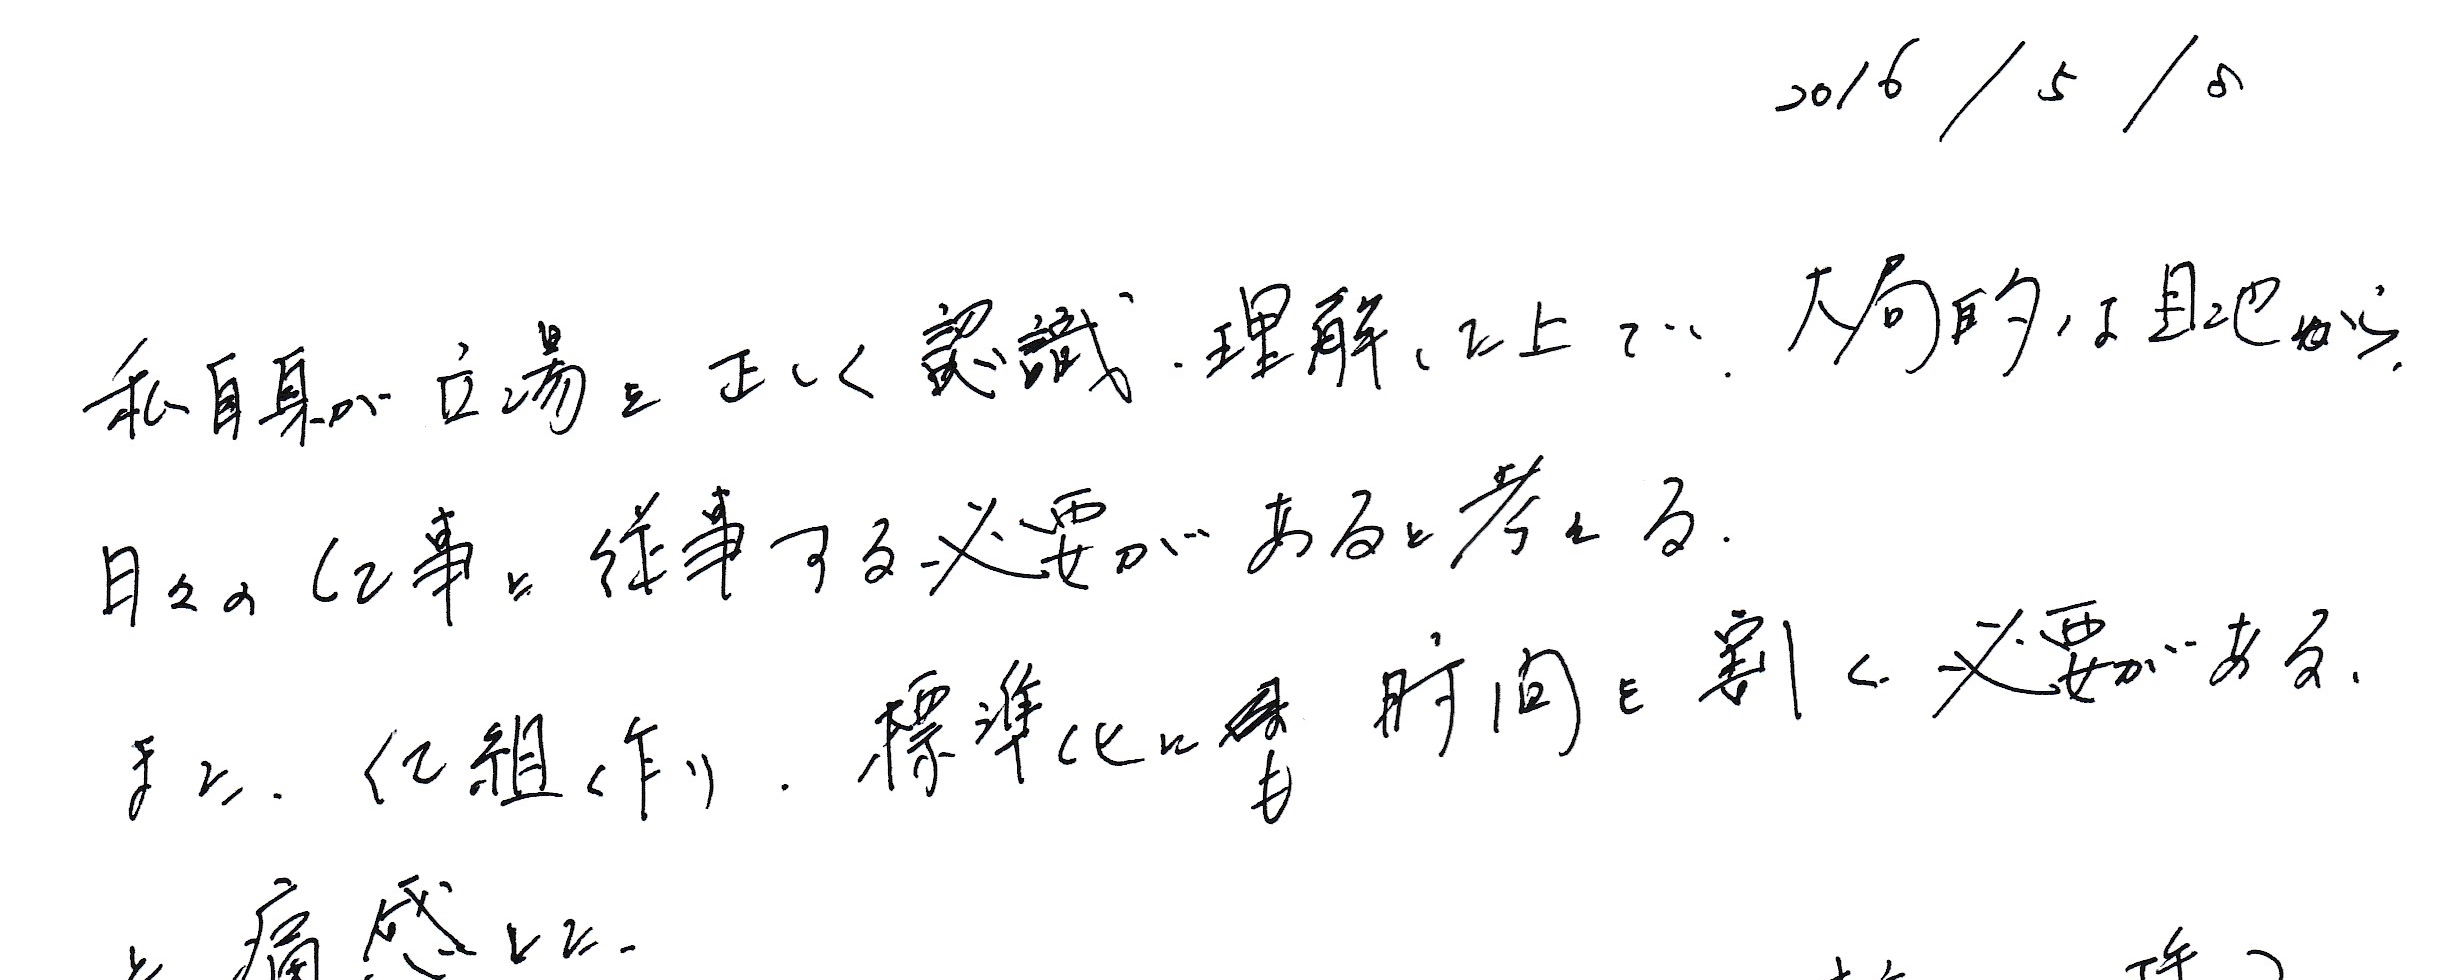 2016/5/8
私自身が立場を正しく認識・理解した上で、大局的な見地から、
日々の仕事に従事する必要があると考える。
また、仕組作り、標準化にも時間を割く必要がある、
と痛感した。